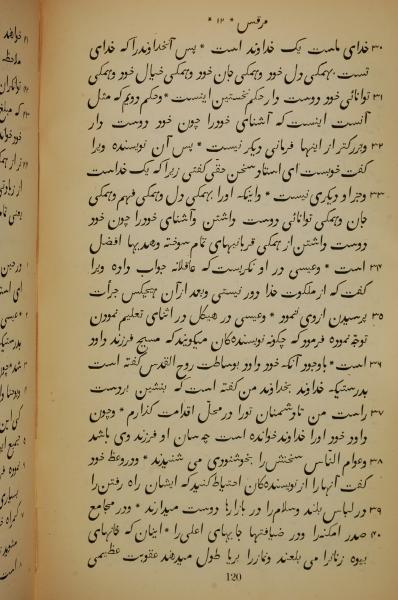 مرقس * ۱۲ *
۳۰ خدای ماست یک خداوند است * پس آنخداوندرا که خدای
تست بهمکی دل خود وهمکی جان خود وهمکی خیال خود وهمکی
۳۱ توانائی خود دوست دار حکم نخستین اینست * وحکم دویم که مثل
آنست اینست که آشنای خودرا چون خود دوست دار
۳۲ وبزرکتر از اینها فرمانی دیکر نیست * پس آن نویسنده ویرا
کفت خوبست ای استاد سخن حقی کفتی زیرا که یک خداست
۳۳ وجز او دیکری نیست * واینکه اورا بهمکی دل وهمکی فهم وهمکی
جان وهمکی توانائی دوست داشتن وآشنای خودرا چون خود
دوست داشتن از همکی قربانیهای تمام سوخته وهدیها افضل
۳۴ است * وعیسی در او نکریست که عاقلانه جواب داده ویرا
کفت که از ملکوت خدا دور نیستی وبعد ازآن هیچکس جرأت
۳۵ پرسیدن ازوی ننمود * وعیسی در هیکل در اثنای تعلیم نمودن
توجه نموده فرمود که چکونه نویسندهکان میکویند که مسیح فرزند داود
۳۶ است * باوجود آنکه خود داود بوساطت روح القدس کفته است
بدرستیکه خداوند بخداوند من کفته است که بنشین بردست
۳۷ راست من تا دشمنان تورا در محل اقدامت کذارم * وچون
داود خود اورا خداوند خوانده است چه سان او فرزند وی باشد
۳۸ وعوام الناس سخنش را بخوشنودی می شنیدند * ودروعظ خود
کفت آنهارا از نویسندهکان احتیاط کنید که ایشان راه رفتن را
۳۹ در لباس بلند وسلام را در بازارها دوست میدارند * ودر مجامع
۴۰ صدر امکنه را ودر ضیافتها جایهای اعلی را * اینان که خانهای
بیوه زنانرا می بلعند ونمازرا بریا طول میدهند عقوبت عظیمی
120